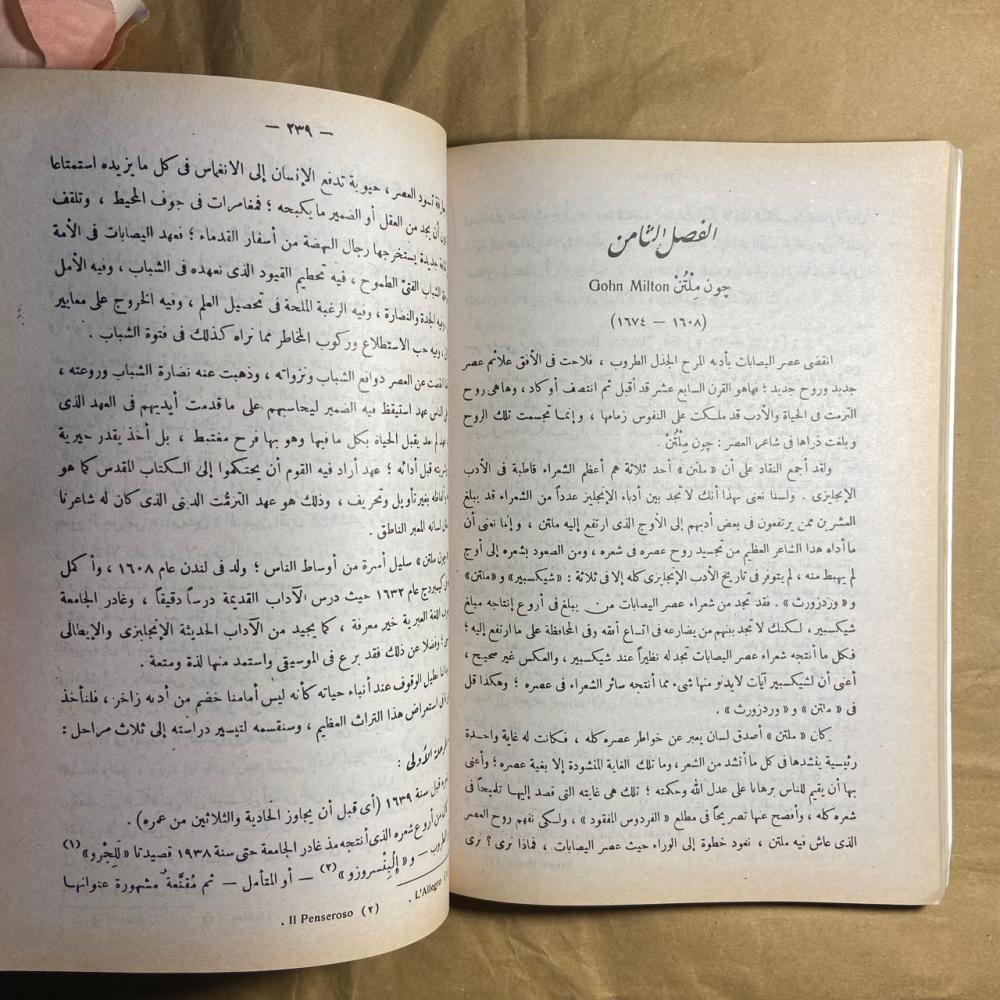 الفصل الثامن
چون مِلْتُنْ Gohn Milton
(١٦٠٨ — ١٦٧٤)
انقضى عصر اليصابات بأدبه المرح الجذل الطروب ، فلاحت فى الأفق علائم عصر
جديد وروح جديد ؛ فهاهو القرن السابع عشر قد أقبل ثم انتصف أو كاد ، وهاهى روح
التزمت فى الحياة والأدب قد ملكت على النفوس زمامها ، وإنما تجسمت تلك الروح
وبلغت ذراها فى شاعر العصر : چون مِلْتُنْ .
ولقد أجمع النقاد على أن « ملتن » أحد ثلاثة هم أعظم الشعراء قاطبة فى الأدب
الإنجليزى . ولسنا نعنى بهذا أنك لا تجد بين أدباء الإنجليز عدداً من الشعراء قد يبلغ
العشرين ممن يرتفعون فى بعض أدبهم إلى الأوج الذى ارتفع إليه ملتن ، وإنما نعنى أن
ما أداه هذا الشاعر العظيم من تجسيد روح عصره فى شعره ، ومن الصعود بشعره إلى أوج
لم يهبط منه ، لم يتوفر فى تاريخ الأدب الإنجليزى كله إلا فى ثلاثة : «شيكسبير» و«ملتن»
و « وردزورث » . فقد تجد من شعراء عصر اليصابات من يبلغ فى أروع إنتاجه مبلغ
شيكسبير ، لكنك لا تجد بينهم من يضارعه فى اتساع أفقه وفى المحافظة على ما ارتفع إليه ؛
فكل ما أنتجه شعراء عصر اليصابات تجد له نظيراً عند شيكسبير ، والعكس غير صحيح ،
أعنى أن لشيكسبير آيات لا يدنو منها شىء مما أنتجه سائر الشعراء فى عصره ؛ وهكذا قل
فى « ملتن » و « وردزورث » .
كان « ملتن » أصدق لسان يعبر عن خواطر عصره كله ، فكانت له غاية واحدة
رئيسية ينشدها فى كل ما أنشد من الشعر ، وما تلك الغاية المنشودة إلا بغية عصره ؛ وأعنى
بها أن يقيم للناس برهانا على عدل الله وحكمته ؛ تلك هى غايته التى قصد إليها تلميحاً فى
شعره كله ، وأفصح عنها تصريحاً فى مطلع « الفردوس المفقود » ، ولكى نفهم روح العصر
الذى عاش فيه ملتن ، نعود خطوة إلى الوراء حيث عصر اليصابات ، فماذا نرى ؟ نرى
— ٢٣٩ —
تسود العصر ، حيوية تدفع الإنسان إلى الانغماس فى كل ما يزيده استمتاعا
أن يجد من العقل أو الضمير ما يكبحه ؛ فمغامرات فى جوف المحيط ، وتلقف
جديدة يستخرجها رجال النهضة من أسفار القدماء ؛ فعهد اليصابات فى الأمة
الشباب الفتىّ الطموح ، فيه تحطيم القيود الذى نعهده فى الشباب ، وفيه الأمل
وفيه الجدة والنضارة ، وفيه الرغبة الملحة فى تحصيل العلم ، وفيه الخروج على معايير
، وفيه حب الاستطلاع وركوب المخاطر مما نراه كذلك فى فتوة الشباب .
انفضت عن العصر دوافع الشباب ونزواته ، وذهبت عنه نضارة الشباب وروعته ،
الناس عهد استيقظ فيه الضمير ليحاسبهم على ما قدمت أيديهم فى العهد الذى
لم يعد يقبل الحياة بكل ما فيها وهو بها فرح مغتبط ، بل أخذ يقدر خيرية
قبل أدائه ؛ عهد أراد فيه القوم أن يحتكموا إلى الكتاب المقدس كما هو
بغير تأويل وتحريف ، وذلك هو عهد التزمُّت الدينى الذى كان له شاعرنا
لسانه المعبر الناطق .
« چون ملتن » سليل أسرة من أوساط الناس ؛ ولد فى لندن عام ١٦٠٨ ، وأكمل
كيمبردج عام ١٦٣٢ حيث درس الآداب القديمة درساً دقيقاً ، وغادر الجامعة
اللغة العبرية خير معرفة ، كما يجيد من الآداب الحديثة الإنجليزى والإيطالى
؛ وفضلا عن ذلك فقد برع فى الموسيقى واستمد منها لذة ومتعة .
نطيل الوقوف عند أنباء حياته كأنه ليس أمامنا خضم من أدبه زاخر ، فلنأخذ
فى استعراض هذا التراث العظيم ، وسنقسمه لتيسير دراسته إلى ثلاث مراحل :
الأولى :
قبل سنة ١٦٣٩ (أى قبل أن يجاوز الحادية والثلاثين من عمره) .
من أروع شعره الذى أنتجه مذ غادر الجامعة حتى سنة ١٩٣٨ قصيدتا « لَلِجْرو » (١)
— و « إلْبِنْسروزو » (٢) — أو المتأمل — ثم مُقنَّعة مشهورة عنوانها
L'Allegro .
(٢) Il Penseroso .